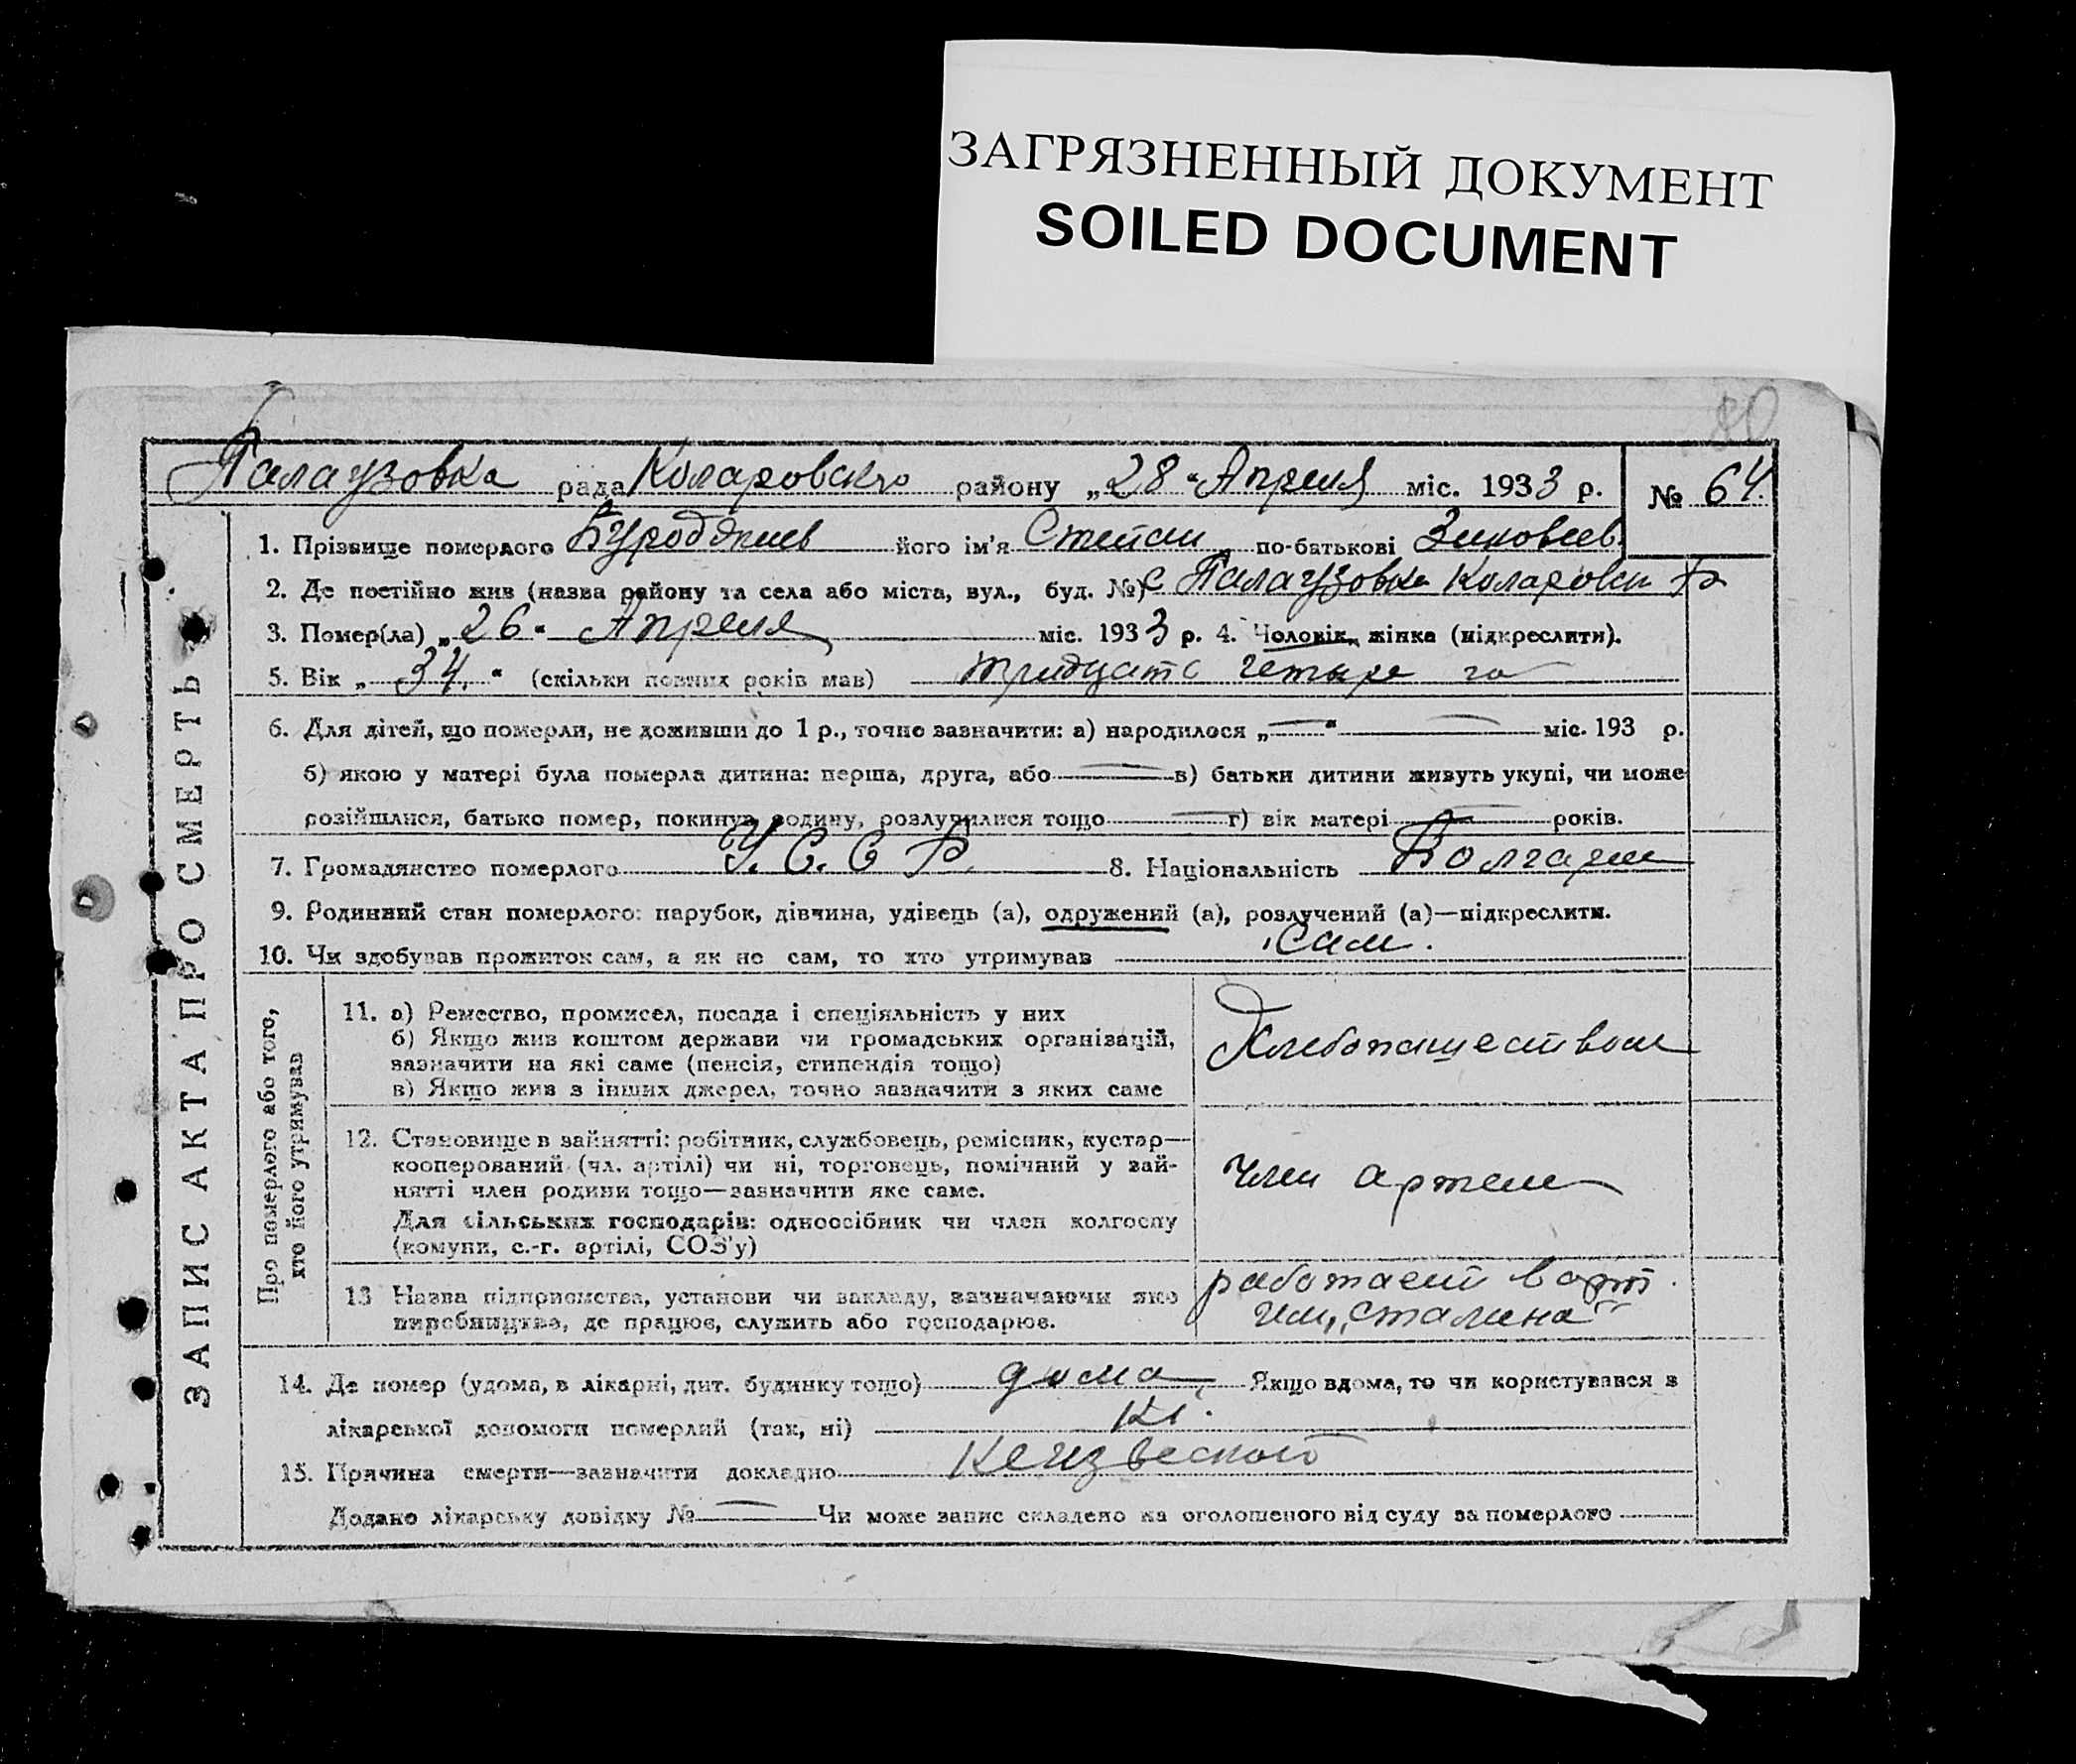 ЗАГРЯЗНЕННЫЙ ДОКУМЕНТ
SOILED DOCUMENT
80
Палаузовка рада Коларовского району „28“ Апреля міс. 1933 р. № 64.
1. Прізвище померлого його ім'я Степан по-батькові Зиновьев.
2. Де постійно жив (назва району та села або міста, вул., буд. №) с Палаузовка Коларовск
3. Помер(ла) „26“ Апреля міс. 1933 р. 4. Чоловік, жінка (підкреслити).
5. Вік „34.“ (скільки повних років мав) тридцать четыре го
6. Для дітей, що померли, не доживши до 1 р., точно зазначити: а) народилося „—“ — міс. 193 р.
б) якою у матері була померла дитина: перша, друга, або — в) батьки дитини живуть укупі, чи може
розійшлися, батько помер, покинув родину, розлучилися тощо — г) вік матері — років.
7. Громадянство померлого У. С. С. Р. 8. Національність Болгарин
9. Родинний стан померлого: парубок, дівчина, удівець (а), одружений (а), розлучений (а)—підкреслити.
10. Чи здобував прожиток сам, а як не сам, то хто утримував Сам.
ЗАПИС АКТА ПРО СМЕРТЬ
Про померлого або того,
хто його утримував
11. а) Ремество, промисел, посада і спеціяльність у них
б) Якщо жив коштом держави чи громадських організацій,
зазначити на які саме (пенсія, стипендія тощо)
в) Якщо жив з інших джерел, точно зазначити з яких саме
Хлебопашеством
12. Становище в зайнятті: робітник, службовець, ремісник, кустар—
кооперований (чл. артілі) чи ні, торговець, помічний у зай-
нятті член родини тощо—зазначити яке саме.
Для сільських господарів: одноосібник чи член колгоспу
(комуни, с.-г. артілі, СОЗ'у)
Член артели
13 Назва підприємства, установи чи закладу, зазначаючи яке
виробництво, де працює, служить або господарює.
работает в арт.
им „Сталина“
14. Де помер (удома, в лікарні, дит. будинку тощо) дома, Якщо вдома, то чи користувався з
лікарської допомоги померлий (так, ні)
15. Причина смерти—зазначити докладно
Додано лікарську довідку № — Чи може запис складено на оголошеного від суду за померлого